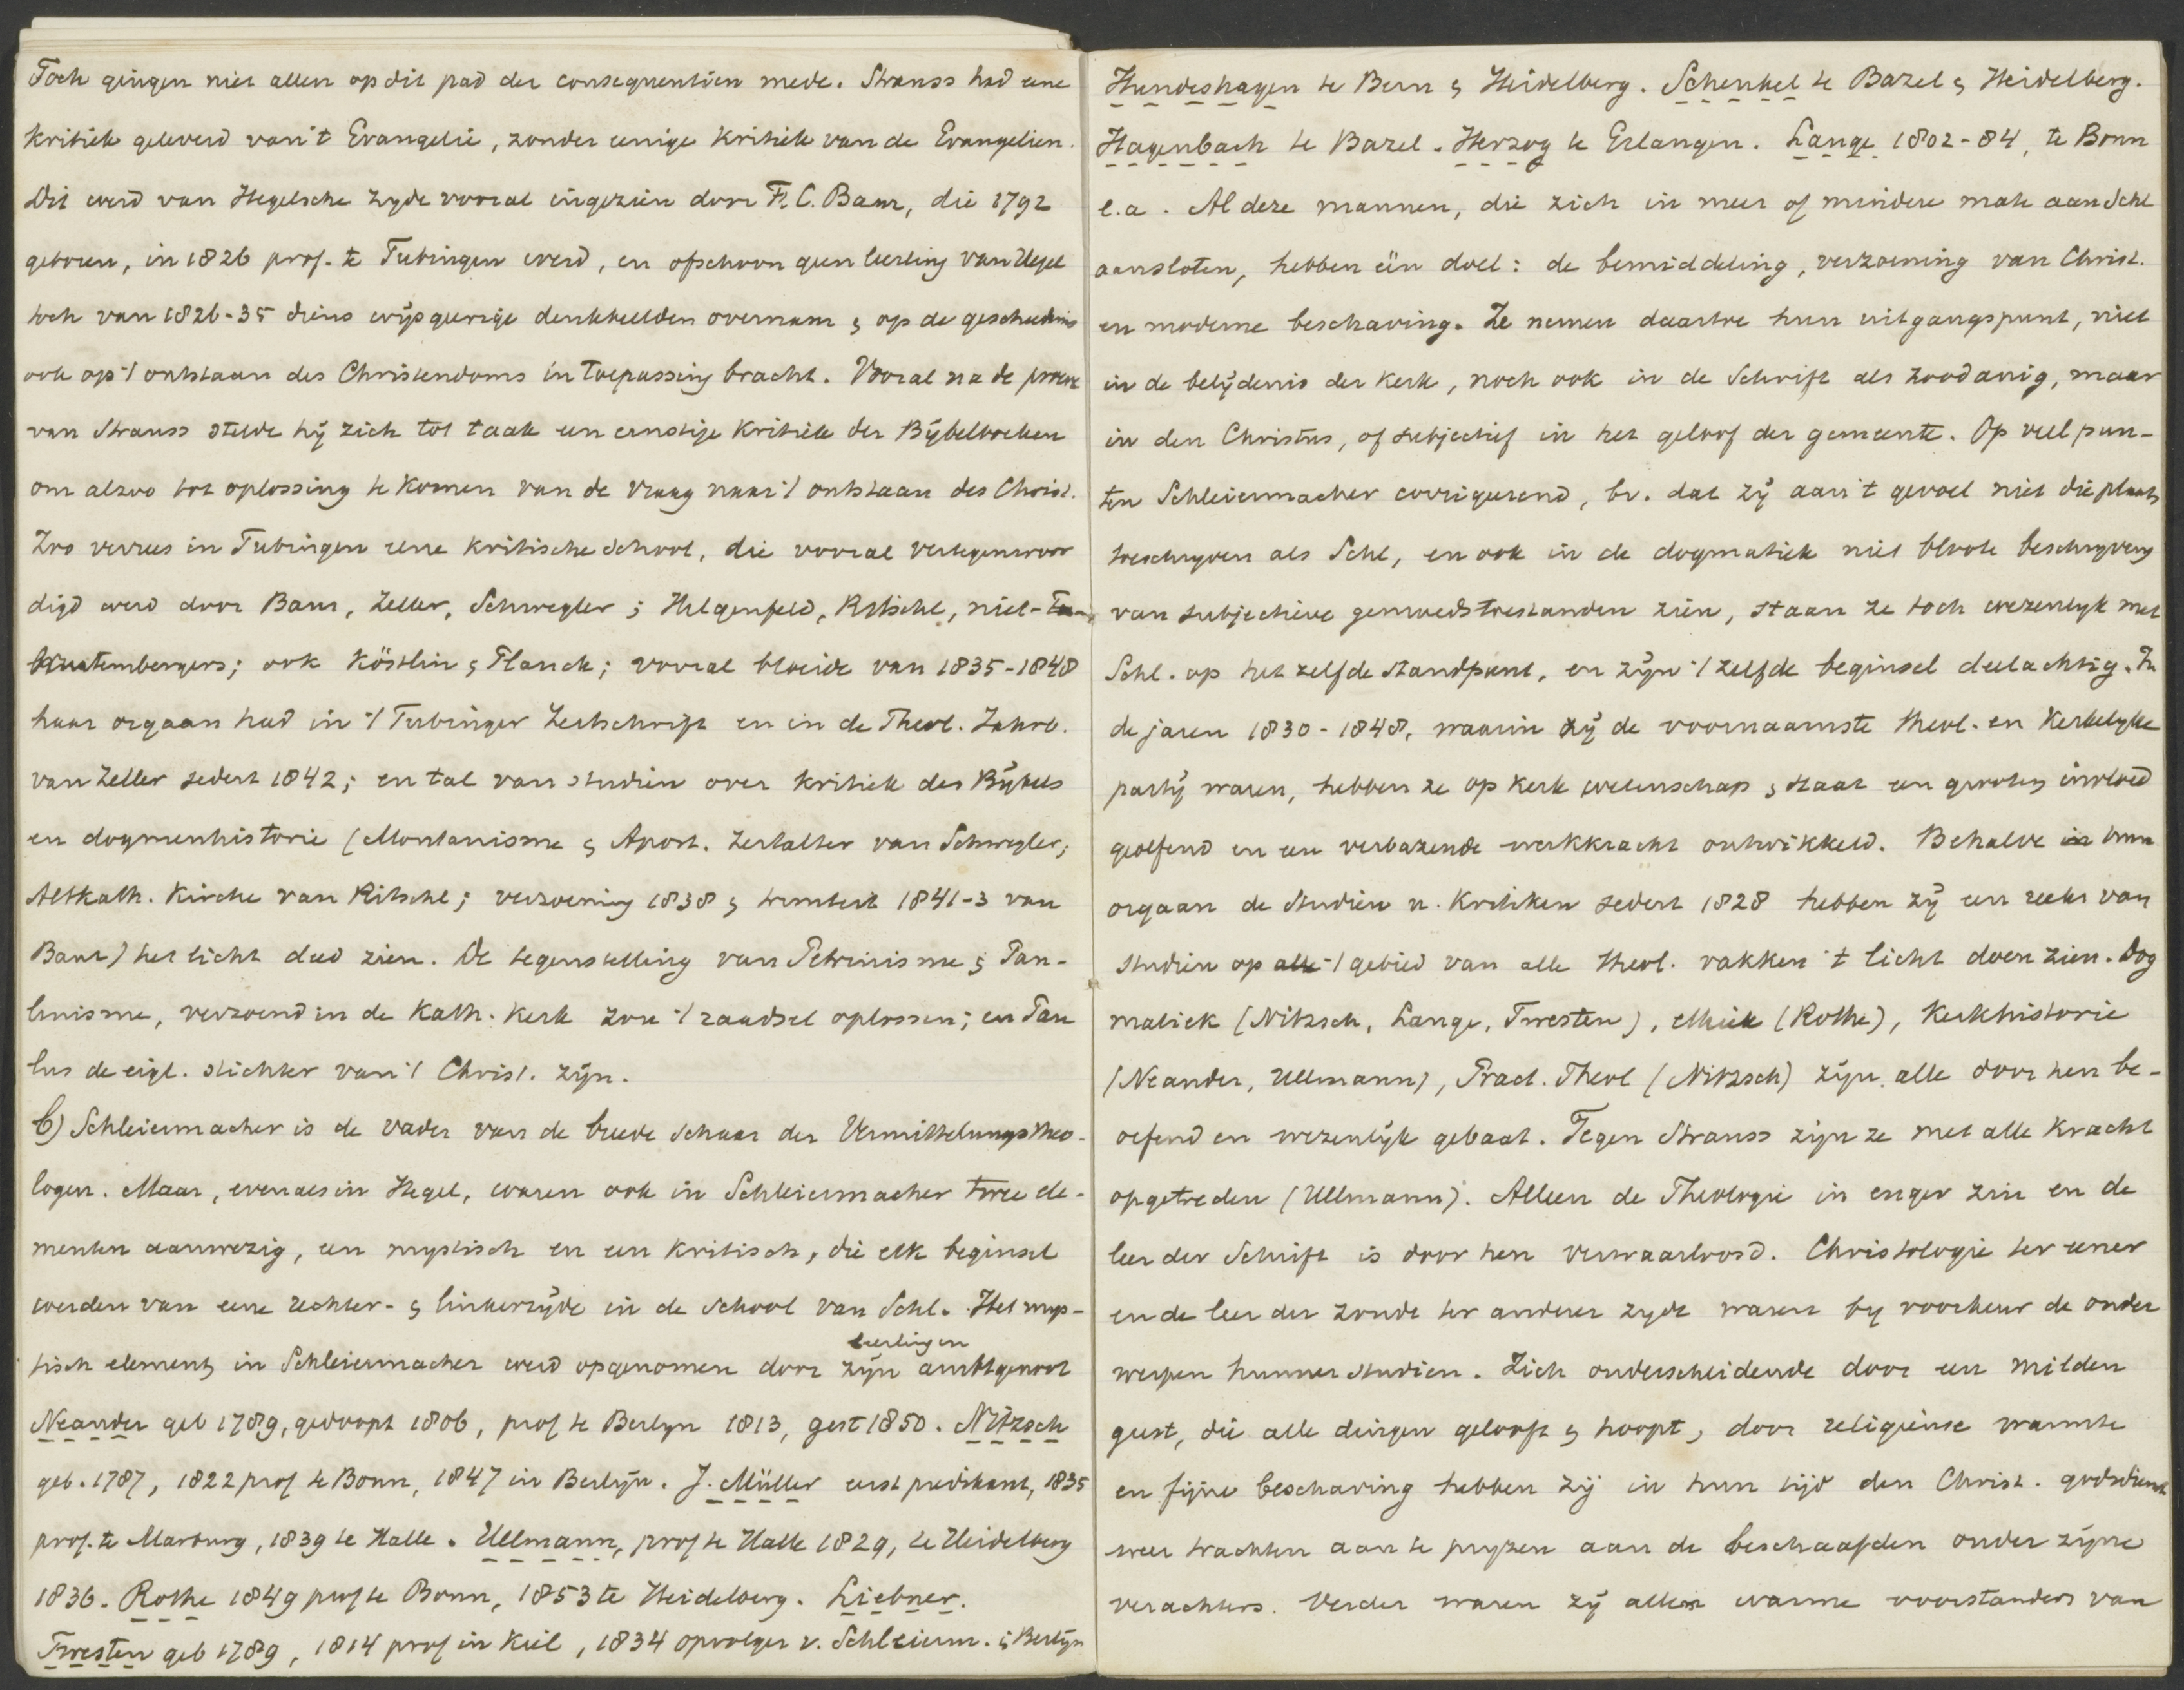 Toch gingen niet allen op dit pad der consequentiën mede. Strauss had eene
kritiek geleverd van 't Evangelie, zonder eenige kritiek van de Evangeliën.
Dit werd van Hegelsche zyde vooral ingezien door F. C. Baur, die 1792
geboren, in 1826 prof. te Tubingen werd, en ofschoon geen leerling van Hegel
toch van 1826-35 diens wijsgeerige denkbeelden overnam & op de geschiedenis
ook op 't ontstaan des Christendoms in toepassing bracht. Vooral na de proeve
van Strauss stelde hij zich tot taak een ernstige kritiek der Bijbelboeken
om alzoo tot oplossing te komen van de vraag naar 't ontstaan des Christ.
Zoo verrees in Tubingen eene kritische school, die vooral vertegenwoor
digd werd door Baur, Zeller, Schwegler; Hilgenfeld, Ritschl, niet-
Wurtembergers; ook Köstlin & Planck; vooral bloeide van 1835-1848
haar orgaan had in 't Tubinger Zeitschrift en in de Theol. Jahrb.
van Zeller sedert 1842; en tal van studiën over kritiek des Bijbels
en dogmenhistorie (Montanisme & Apost. Zeitalter van Schwegler;
Altkath. Kirche van Ritschl; verzoening 1838 & triniteit 1841-3 van
Baur) het licht deed zien. De tegenstelling van Petrinisme & Pau-
linisme, verzoend in de Kath. Kerk zou 't raadsel oplossen; en Pau
lus de eigl. stichter van 't Christ. zijn.
b) Schleiermacher is de vader van de breede schaar der Vermittelungstheo-
logen. Maar, evenals in Hegel, waren ook in Schleiermacher twee ele-
menten aanwezig, een mystisch en een kritisch, die elk beginsel
werden van eene rechter- & linkerzijde in de school van Schl. Het mys-
leerlingen
tisch element in Schleiermacher werd opgenomen door zijn ambtgenoot
Neander geb 1789, gedoopt 1806, prof te Berlyn 1813, gest 1850. Nitzsch
geb. 1787, 1822 prof te Bonn, 1847 in Berlijn. J. Müller eerst predikant, 1835
prof. te Marburg, 1839 te Halle. Ullmann, prof te Halle 1829, te Heidelberg
1836. Rothe 1849 prof te Bonn, 1853 te Heidelberg. Liebner.
Twesten geb 1789, 1814 prof in Kiel, 1834 opvolger v. Schleierm. i. Berlijn
Hundeshagen te Bern & Heidelberg. Schenkel te Bazel & Heidelberg.
Hagenbach te Bazel. Herzog te Erlangen. Lange 1802-84, te Bonn
e.a. Al deze mannen, die zich in meer of mindere mate aan Schl
aansloten, hebben één doel: de bemiddeling, verzoening van Christ.
en moderne beschaving. Ze nemen daartoe hun uitgangspunt, niet
in de belijdenis der kerk, noch ook in de Schrift als zoodanig, maar
in den Christus, of subjectief in het geloof der gemeente. Op veel pun-
ten Schleiermacher corrigeerend, bv. dat zij aan 't gevoel niet die plaats
toeschryven als Schl, en ook in de dogmatiek niet bloote beschryving
van subjectieve gemoedstoestanden zien, staan ze toch wezenlyk met
Schl. op het zelfde standpunt, en zijn 't zelfde beginsel deelachtig. In
de jaren 1830-1848, waarin zij de voornaamste theol. en kerkelyke
partij waren, hebben ze op kerk wetenschap & staat een grooten invloed
geoefend en een verbazende werkkracht ontwikkeld. Behalve in hun
orgaan de Studien u. Kritiken sedert 1828 hebben zij een reeks van
studiën op alle 't gebied van alle theol. vakken 't licht doen zien. Dog
matiek (Nitzsch, Lange, Twesten), ethiek (Rothe), Kerkhistorie
(Neander, Ullmann), Pract. Theol (Nitzsch) zijn alle door hen be-
oefend en wezenlijk gebaat. Tegen Strauss zijn ze met alle kracht
opgetreden (Ullmann). Alleen de Theologie in enger zin en de
leer der Schrift is door hen verwaarloosd. Christologie ter eener
en de leer der zonde ter anderer zyde waren by voorkeur de onder
werpen hunner studiën. Zich onderscheidende door een milden
geest, die alle dingen gelooft & hoopt, door religieuse warmte
en fijne beschaving hebben zij in hun tijd den Christ. godsdienst
weer trachten aan te pryzen aan de beschaafden onder zijne
verachters. Verder waren zij allen warme voorstanders van